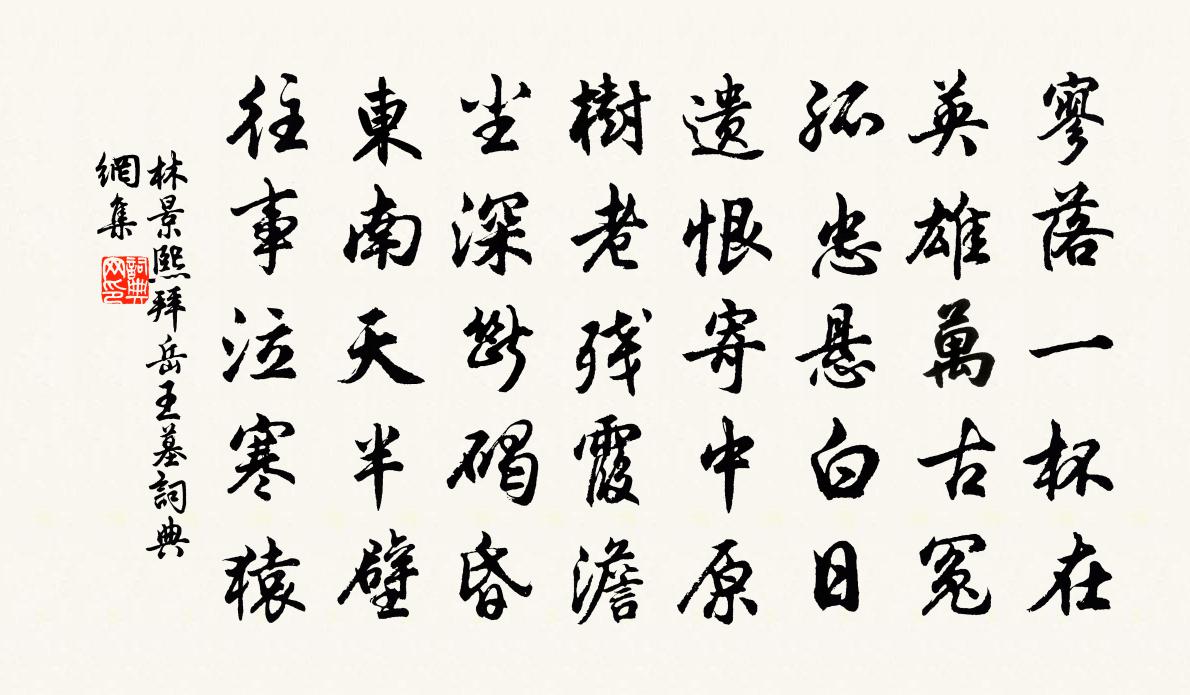 寥落一杯在
英雄萬古冤
孤忠悬白日
遺恨寄中原
樹老残霞澹
坐深斷碣昏
東南天半壁
往事泣寒猿
林景熙拜岳王墓詞典
網集
詞典
网印